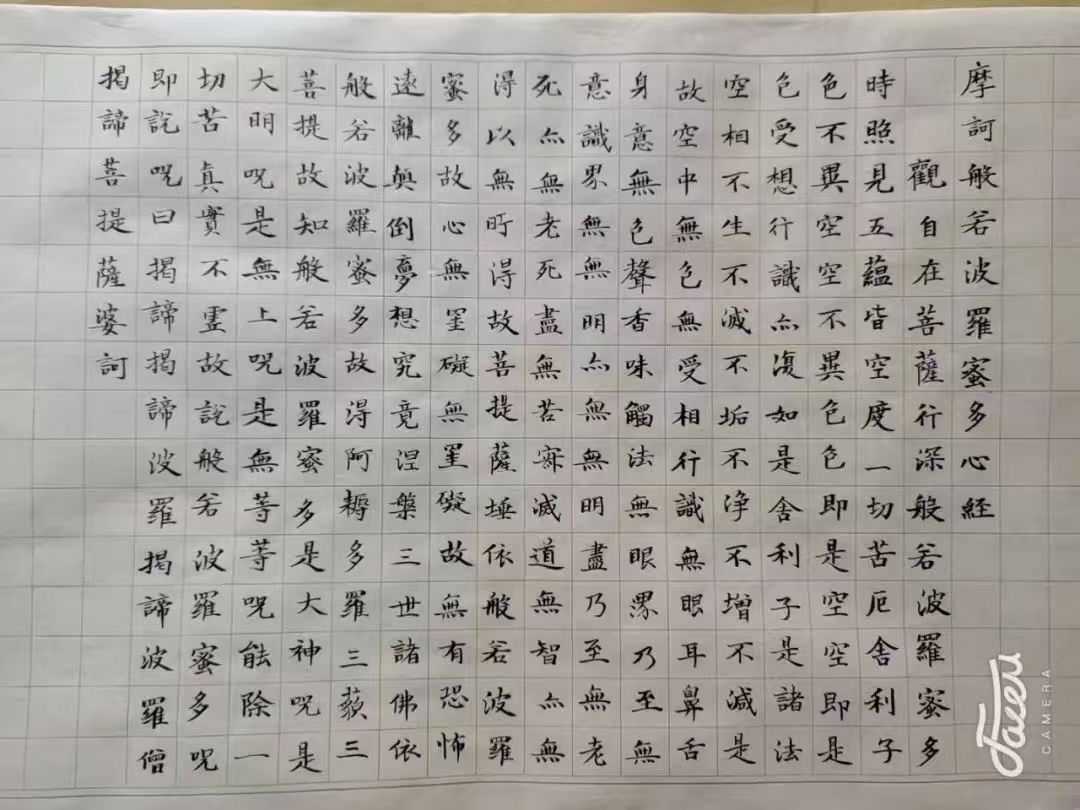 摩訶般若波羅蜜多心経
觀自在菩薩行深般若波羅蜜多
時照見五蘊皆空度一切苦厄舍利子
色不異空空不異色色即是空空即是
色受想行識亦復如是舍利子是諸法
空相不生不滅不垢不淨不增不減是
故空中無色無受相行識無眼耳鼻舌
身意無色聲香味觸法無眼界乃至無
意識界無無明亦無無明盡乃至無老
死亦無老死盡無苦寂滅道無智亦無
得以無所得故菩提薩埵依般若波羅
蜜多故心無罣礙無罣礙故無有恐怖
遠離顛倒夢想究竟涅槃三世諸佛依
般若波羅蜜多故得阿耨多羅三藐三
菩提故知般若波羅蜜多是大神咒是
大明咒是無上咒是無等等咒能除一
切苦真實不虛故說般若波羅蜜多咒
即說咒曰揭諦揭諦波羅揭諦波羅僧
揭諦菩提薩婆訶
Faceu
CAMERA